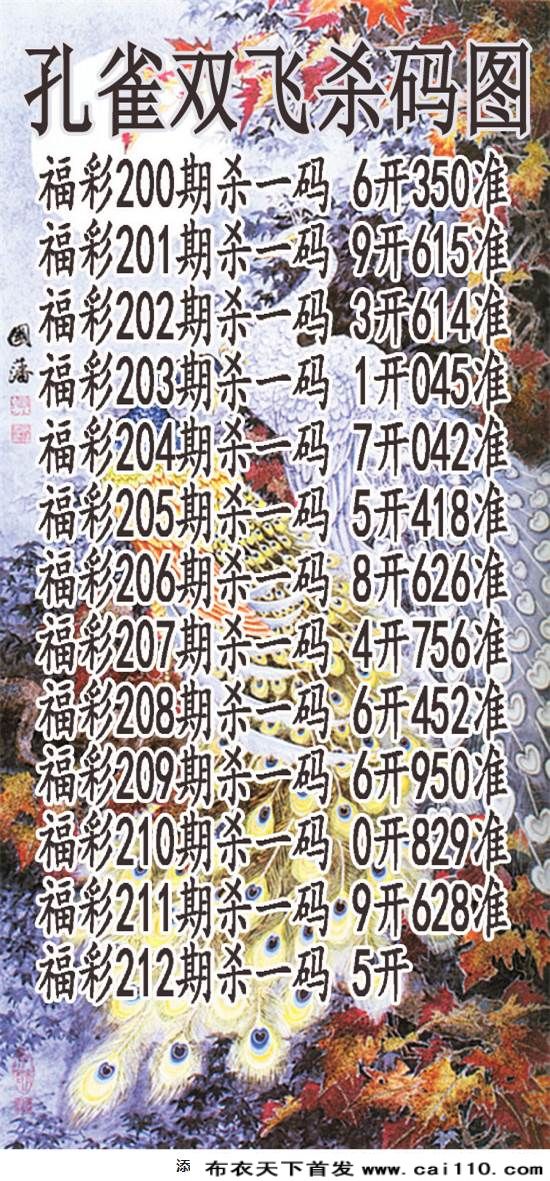 孔雀双飞杀码图
福彩200期杀一码 6开350准
福彩201期杀一码 9开615准
福彩202期杀一码 3开614准
福彩203期杀一码 1开045准
福彩204期杀一码 7开042准
福彩205期杀一码 5开418准
福彩206期杀一码 8开626准
福彩207期杀一码 4开756准
福彩208期杀一码 6开452准
福彩209期杀一码 6开950准
福彩210期杀一码 0开829准
福彩211期杀一码 9开628准
福彩212期杀一码 5开
國藩
添 布衣天下首发 www.cai110.com